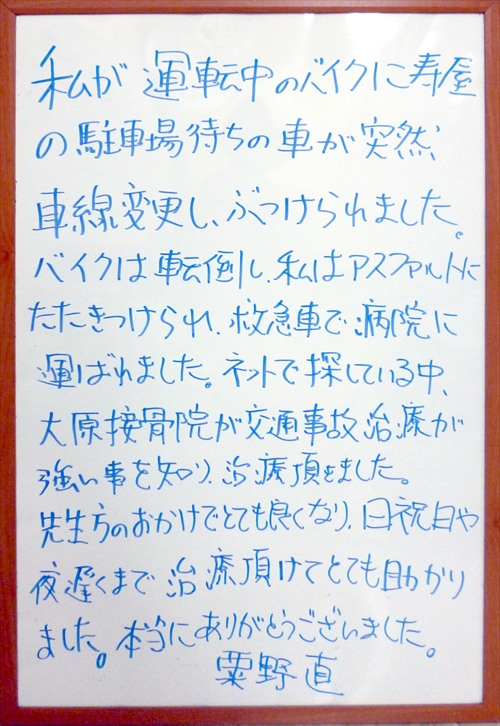 私が運転中のバイクに寿屋
の駐車場待ちの車が突然、
車線変更し、ぶつけられました。
バイクは転倒し、私はアスファルトに
たたきつけられ、救急車で病院に
運ばれました。ネットで探している中、
大原接骨院が交通事故治療が
強い事を知り、治療頂きました。
先生方のおかげでとても良くなり、日祝日や
夜遅くまで治療頂けてとても助かり
ました。本当にありがとうございました。
粟野直